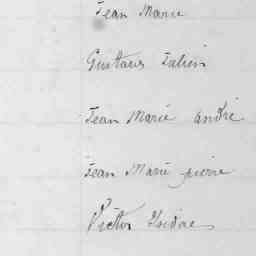 Jean Marie
Gustave Julien
Jean Marie André
Jean Marie pierre
Victor Isidore